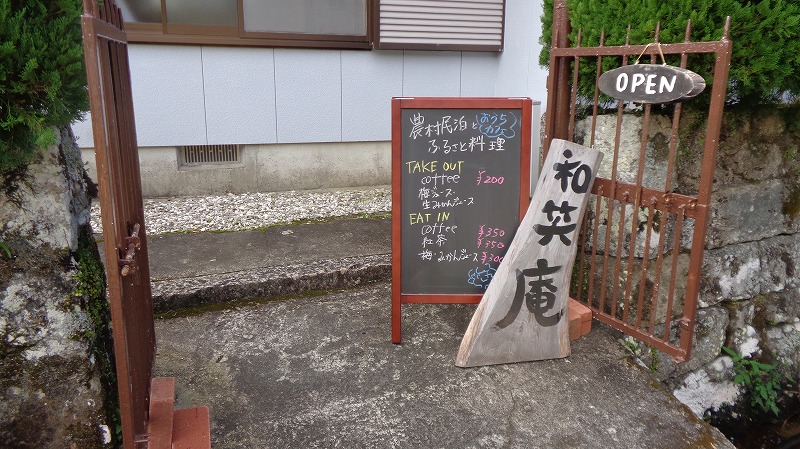 OPEN
農村民泊と おうちカフェ
ふるさと料理
TAKE OUT
coffee ¥200
梅ジュース
生みかんジュース
EAT IN
coffee ¥350
紅茶 ¥350
梅・みかんジュース ¥300
和笑庵